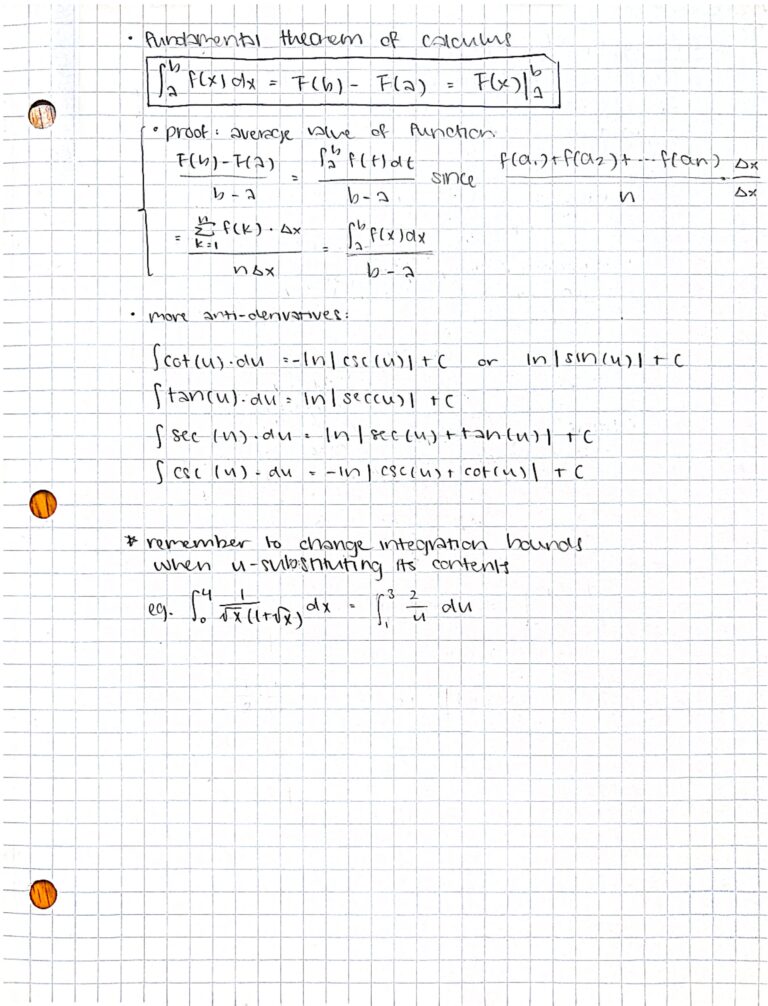 • fundamental theorem of calculus
∫_a^b f(x) dx = F(b) - F(a) = F(x)|_a^b
• proof: average value of function
(F(b) - F(a))/(b - a) = (∫_a^b f(t) dt)/(b - a) since (f(a₁) + f(a₂) + ... f(an))/n · Δx/Δx
= (Σ_{k=1}^n f(k) · Δx)/(nΔx) = (∫_a^b f(x) dx)/(b - a)
• more anti-derivatives:
∫cot(u)·du = -ln|csc(u)| + C or ln|sin(u)| + C
∫tan(u)·du = ln|sec(u)| + C
∫sec(u)·du = ln|sec(u) + tan(u)| + C
∫csc(u)·du = -ln|csc(u) + cot(u)| + C
* remember to change integration bounds
when u-substituting its contents
eg. ∫_0^4 1/(√x(1+√x)) dx = ∫_1^3 2/u du